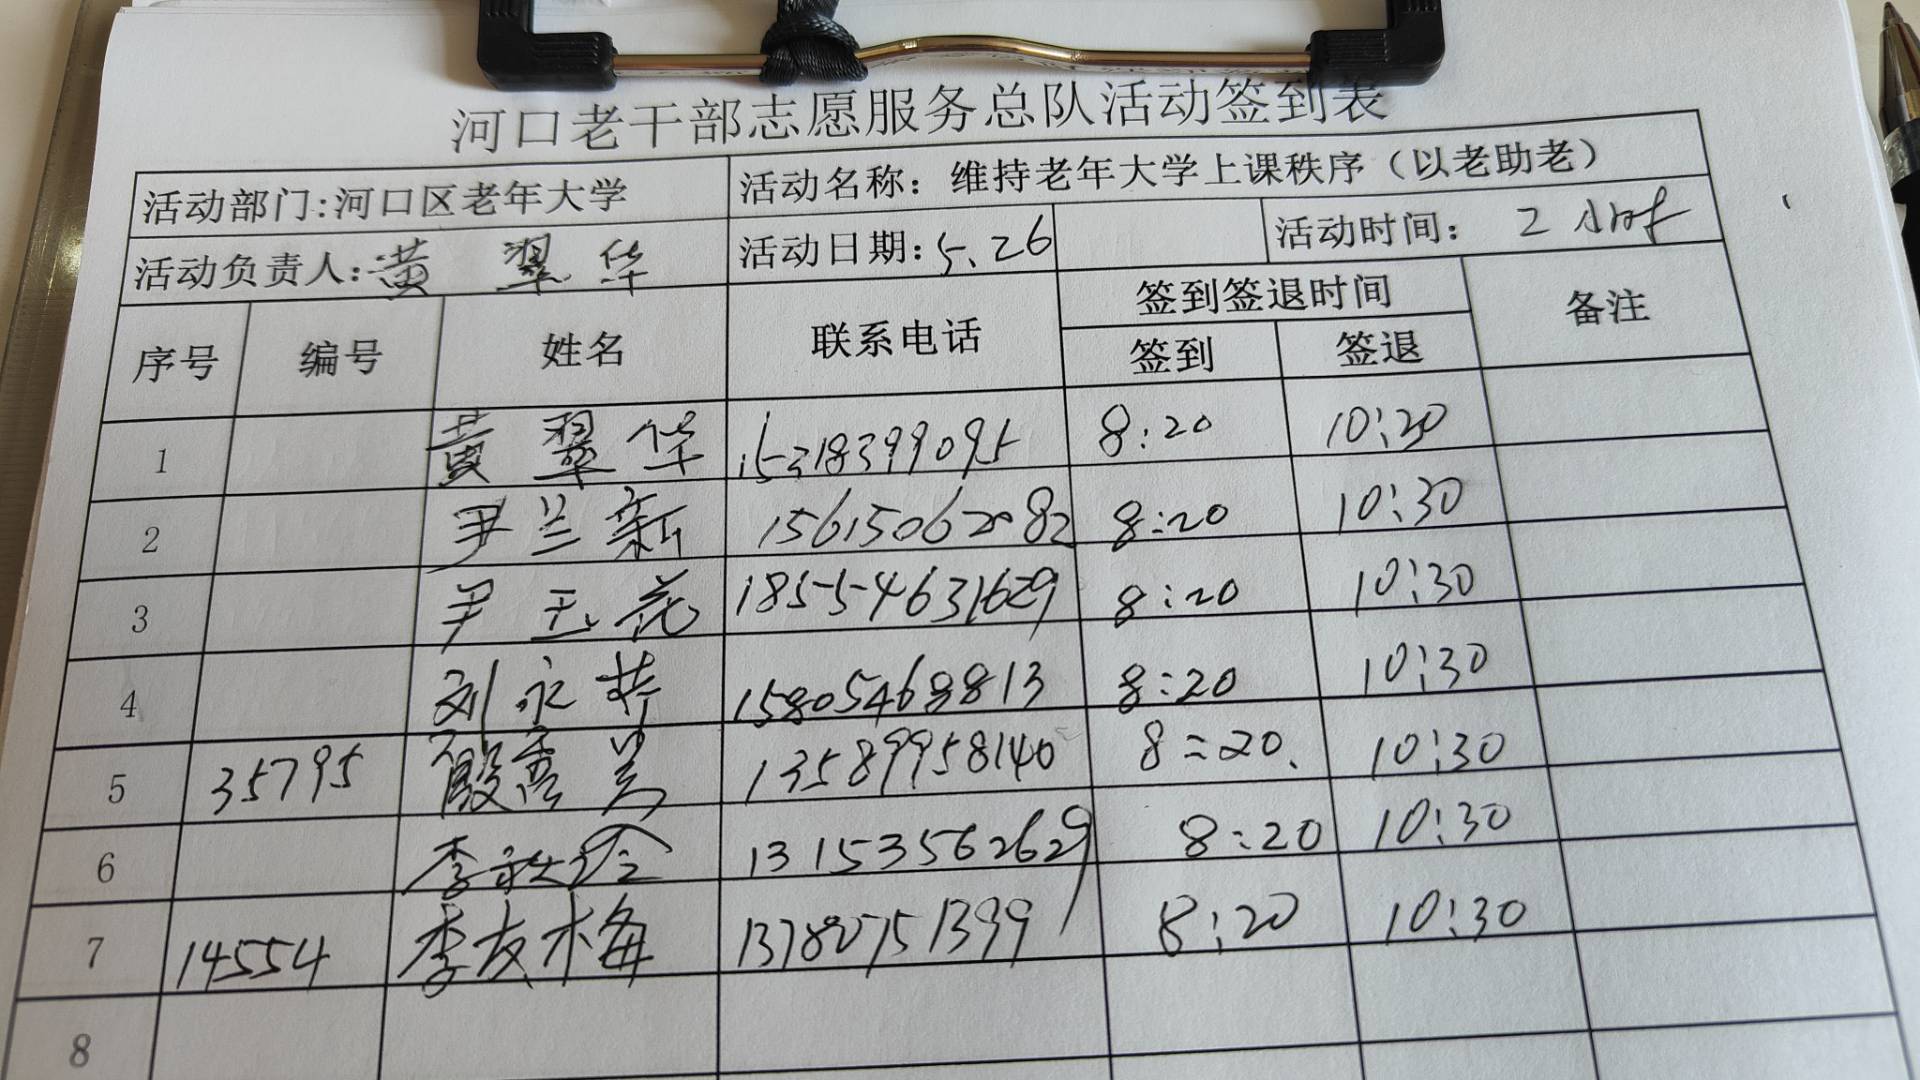 河口老干部志愿服务总队活动签到表
活动部门:河口区老年大学 活动名称：维持老年大学上课秩序（以老助老）
活动负责人:黄翠华 活动日期:5.26 活动时间: 2小时
序号 编号 姓名 联系电话 签到签退时间 备注
签到 签退
1 黄翠华 15318399095 8:20 10:30
2 尹兰新 15615062082 8:20 10:30
3 尹玉花 18554631629 8:20 10:30
4 刘永 15805468813 8:20 10:30
5 35795 殷秀兰 13589958140 8:20. 10:30
6 李 13153562629 8:20 10:30
7 14554 李友梅 13780751399 8:20 10:30
8